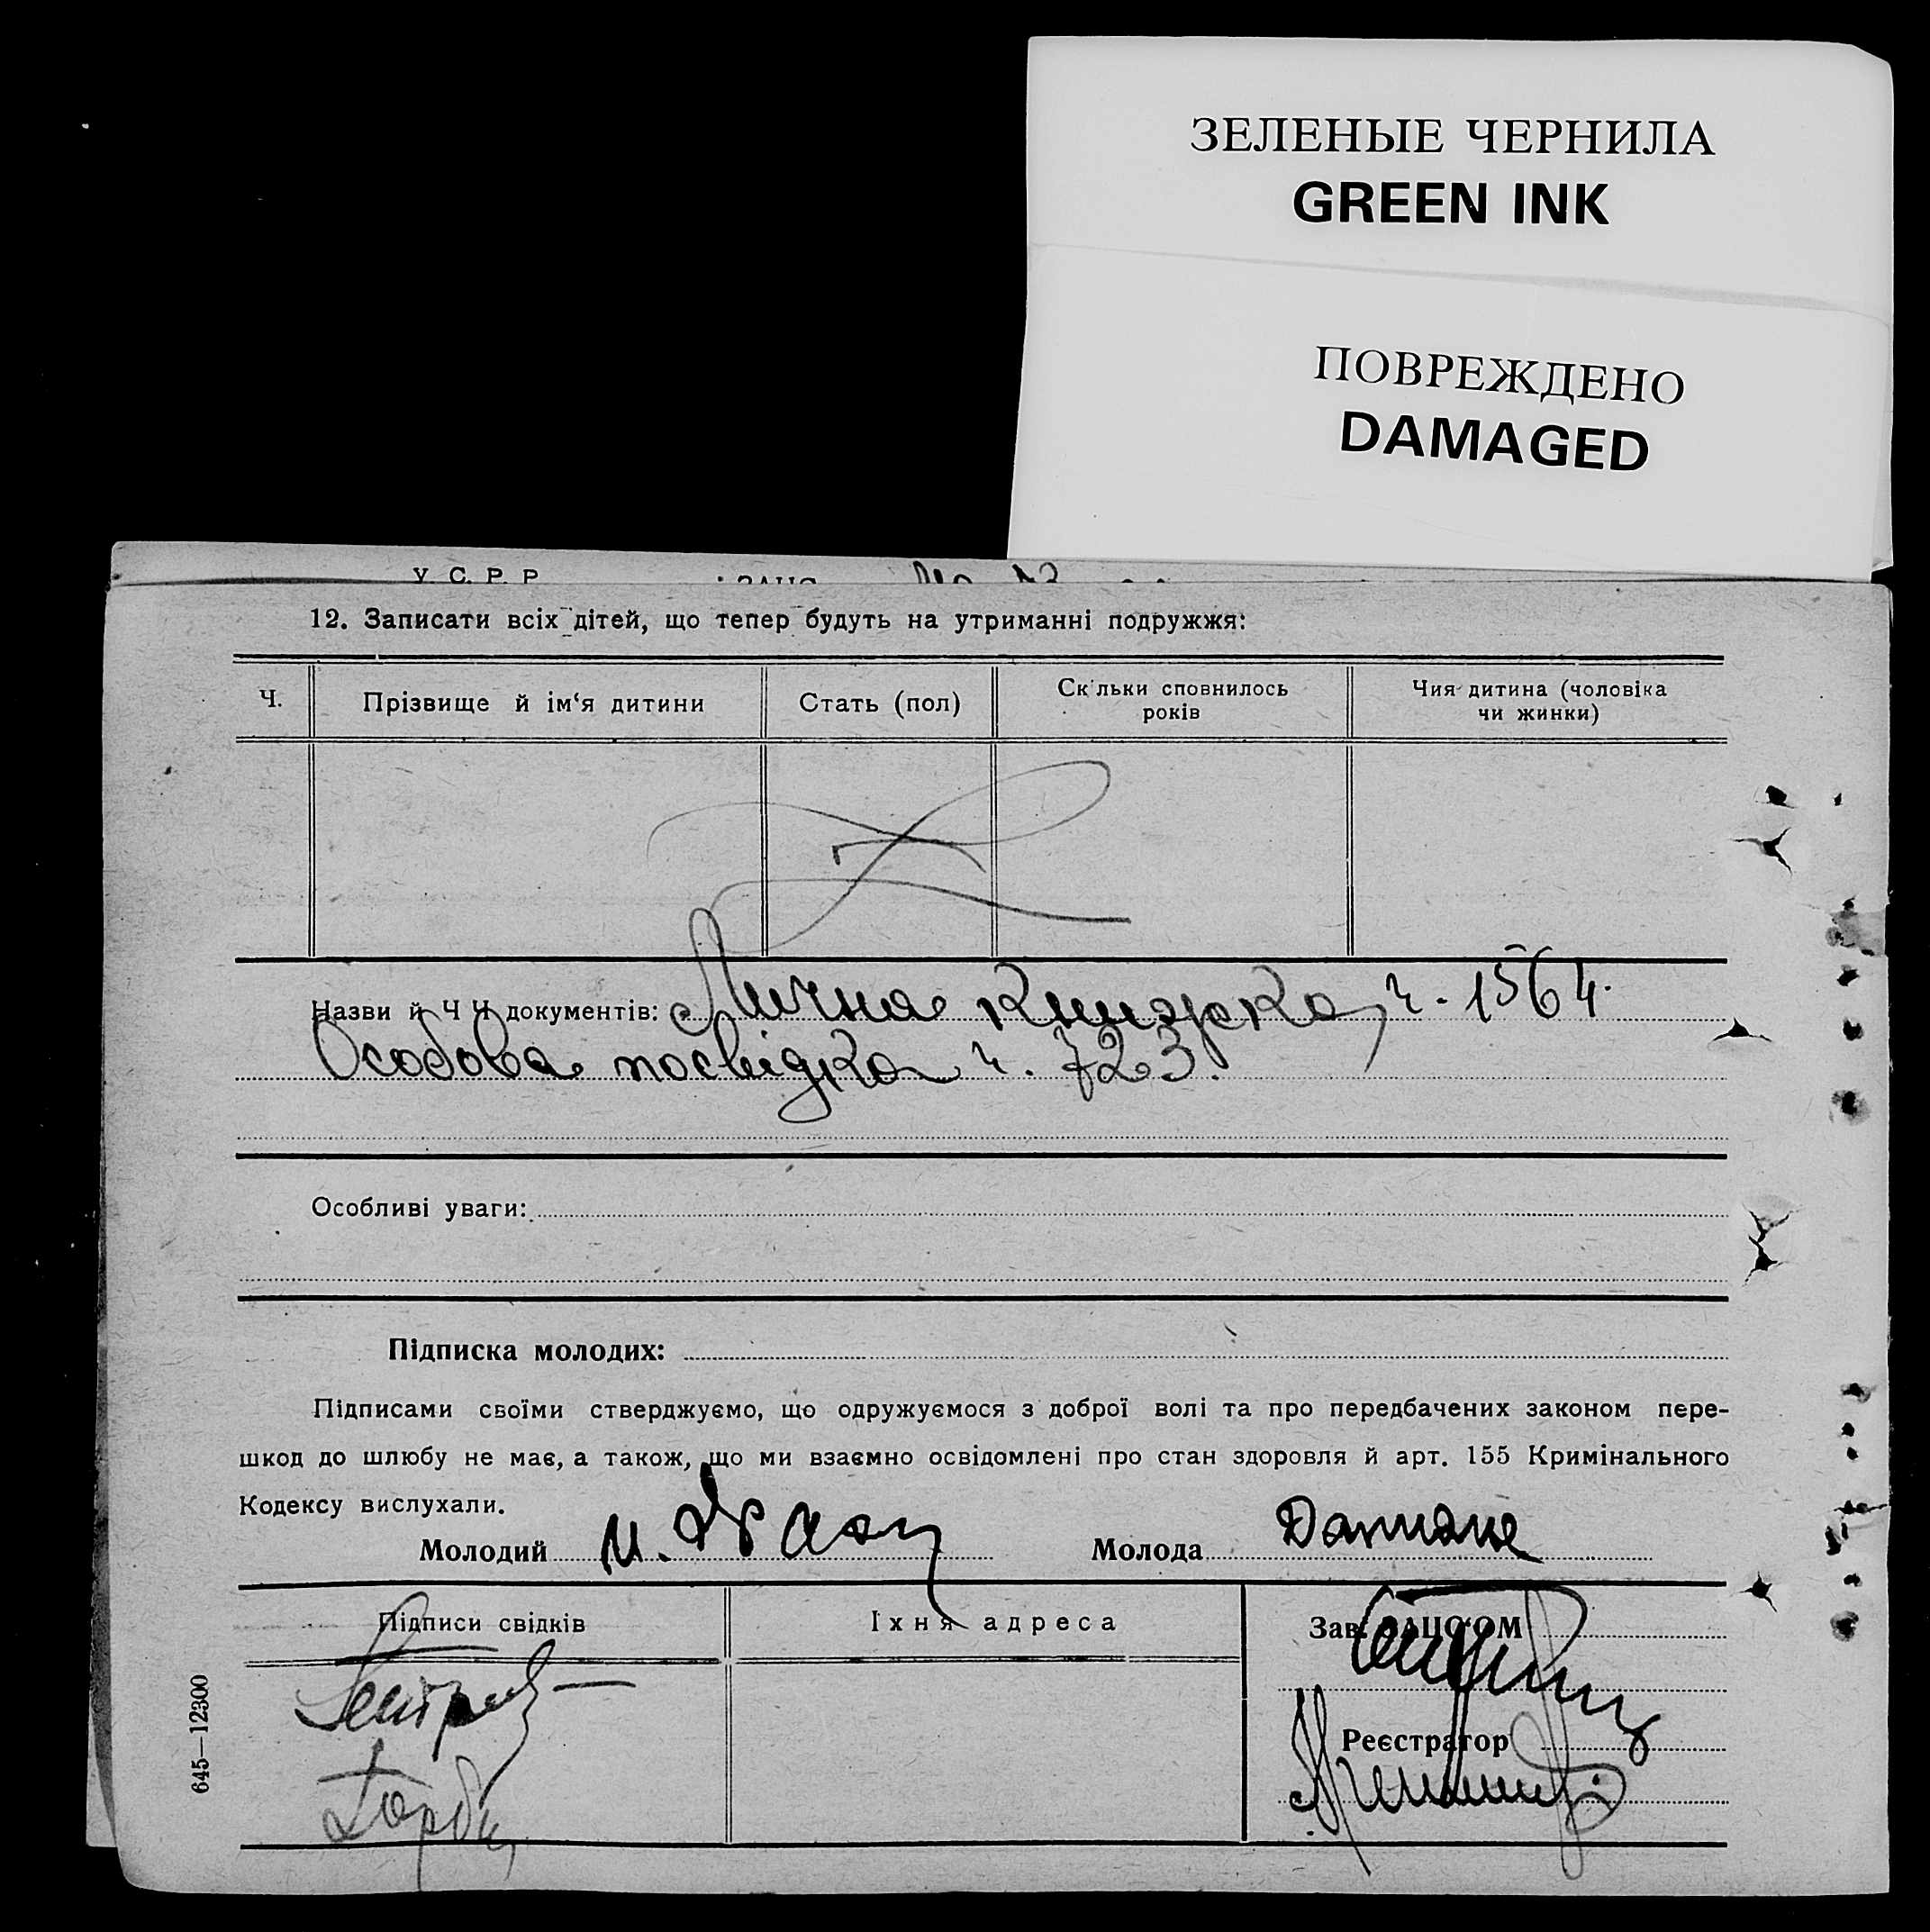 ЗЕЛЕНЫЕ ЧЕРНИЛА
GREEN INK
ПОВРЕЖДЕНО
DAMAGED
У. С. Р. Р.
12. Записати всіх дітей, що тепер будуть на утриманні подружжя:
Ч. Прізвище й ім‘я дитини Стать (пол) Скільки сповнилось років Чия дитина (чоловіка чи жинки)
Назви й Ч Ч документів: Лична книжка, ч. 1564.
Особова посвідка ч. 723.
Особливі уваги:
Підписка молодих:
Підписами своїми стверджуємо, що одружуємося з доброї волі та про передбачених законом пере-
шкод до шлюбу не має, а також, що ми взаємно освідомлені про стан здоровля й арт. 155 Кримінального
Кодексу вислухали.
Молодий Молода
Підписи свідків Їхня адреса Зав. ЗАЦС'ОМ
Реєстратор
645—12300